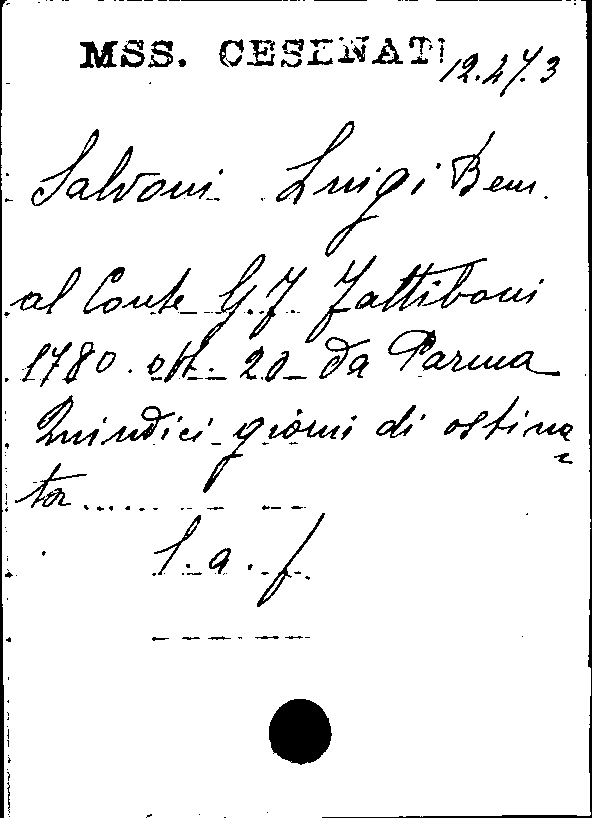 MSS. CESENATI
12.27.3
Salvoni Luigi Bern.
al Conte G. F. Fattiboni
1780. ott. 20 da Parma
Quindici giorni di ostina=
ta......
l. a. f.